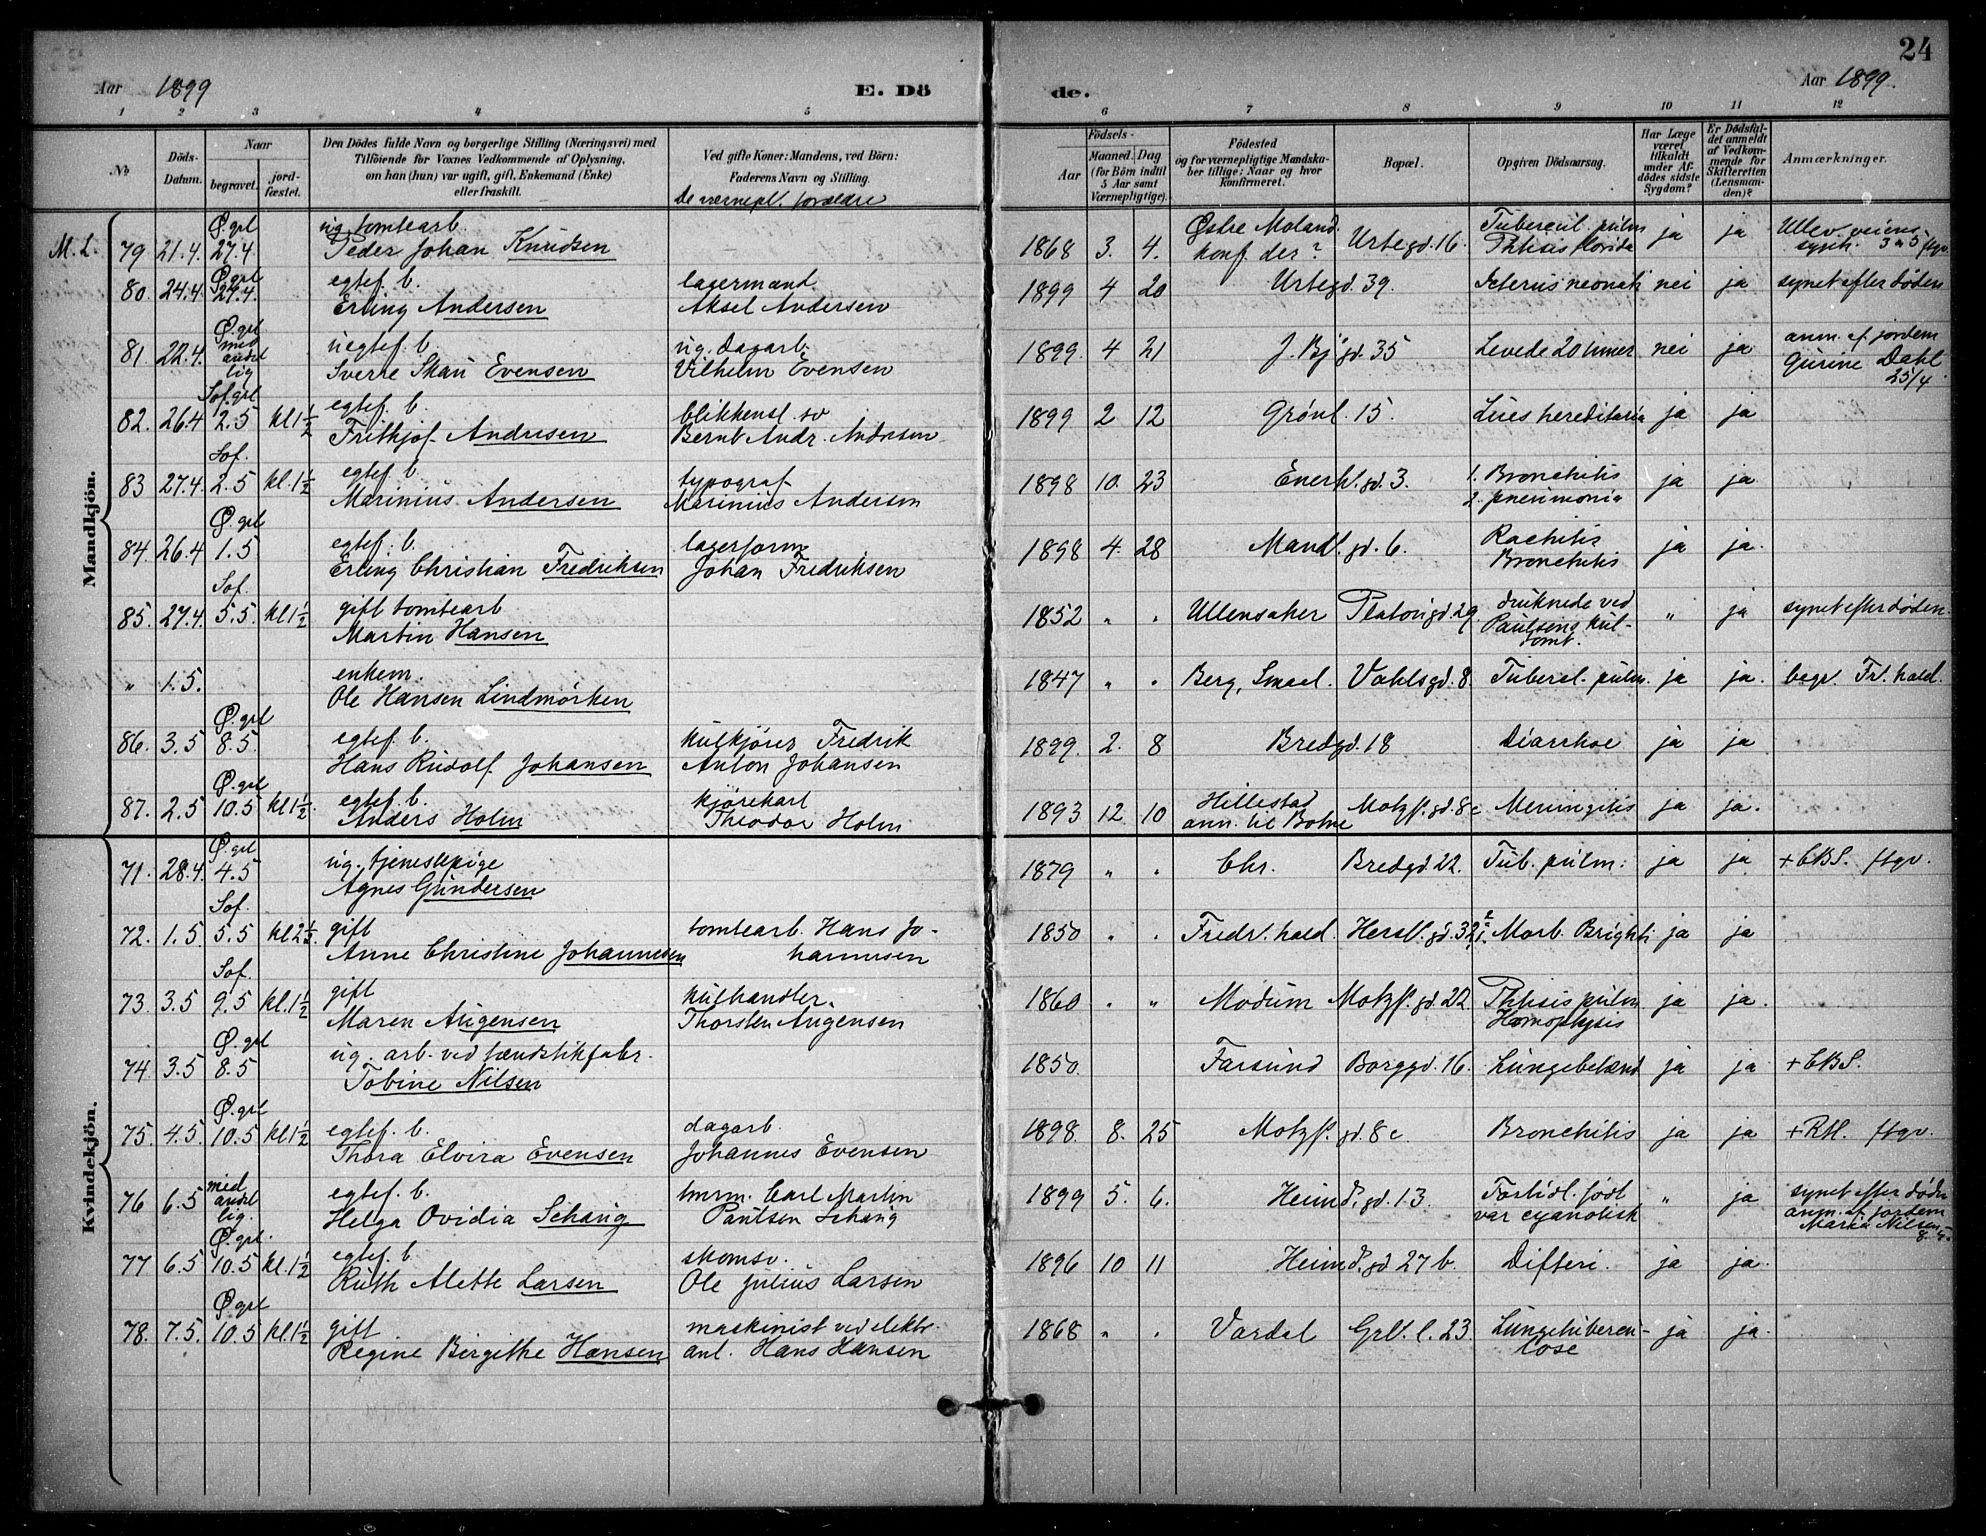 24
Aar 1899 E. Dö
de. Aar 1899.
1 2 3 4 5 6 7 8 9 10 11 12
No
Döds-Datum.
Naar
begravet.
jord-fæstet.
Den Dödes fulde Navn og borgerlige Stilling (Næringsvei) med
Tilföiende for Voxnes Vedkommende af Oplysning,
om han (hun) var ugift, gift, Enkemand (Enke)
eller fraskilt.
Ved gifte Koner: Mandens, ved Börn:
Faderens Navn og Stilling.
De værnepl. forældre
Födsels-
Aar
Maaned. Dag
(for Börn indtil
5 Aar samt
Værnepligtige).
Födested
og for værnepligtige Mandska-
ber tillige: Naar og hvor
konfirmeret.
Bopæl.
Opgiven Dödsaarsag.
Har Læge
været
tilkaldt
under Af-
dödes sidste
Sygdom?
Er Dödsfal-
det anmeldt
af Vedkom-
mende for
Skifteretten
(Lensman-
den)?
Anmærkninger.
Mandkjön.
M. L. 79 21.4. Ø.grl 27.4 ug. tomtearb. Peder Johan Knudsen 1868 3. 4. Østre Moland. konf. der? Urtegd. 16. Tubercul. pulm Phtisis florida ja ja Ullev veiens syph. 3 a 5 ftgv.
80. 24.4. Ø.grl 27.4. egtef. b. Erling Andersen lagermand Aksel Andersen 1899 4 20 Urtegd. 39. Icterus neonati nei ja synet efter døden
81. 22.4. Ø.grl med andet lig uegtef. b. Sverre Skau Evensen ug. dagarb. Vilhelm Evensen 1899. 4 21 J. Bj' gd. 35 Levede 20 timer nei ja anm. af jordem Gurine Dahl 25/4.
82. 26.4 Sof. grl 2.5 kl 1½ egtef. b. Fritkjof Andresen blikkensl. sv Bernt Andr. Andresen 1899 2 12 Grønl. 15. Lues hereditaria ja ja
83 27.4. Sof. 2.5 kl. 1½ egtef. b. Marinius Andersen typograf Marinius Andersen 1898 10. 23 Enerh. gd. 3. 1. Bronchitis 2. pneumonia ja ja
84. 26.4 Ø.grl 1.5 egtef. b. Erling Christian Fredriksen lagerform. Johan Fredriksen 1898 4. 28 Mandl. gd. 6. Rachitis Bronchitis ja ja.
85. 27.4. Sof. 5.5. kl 1½ gift tomtearb Martin Hansen 1852 " " Ullensaker Platousgd. 29. druknede ved Paulsens kul-tomt. " ja synet efter døden.
" 1.5. enkem. Ole Hansen Lindmørken 1847 " " Berg, Smaal. Vahlsgd. 8. Tubercl. pulm. ja ja. begr. Fr. hald.
86. 3.5 Ø.grl 8.5. egtef. b. Hans Rudolf Johansen kulkjører Fredrik Anton Johansen 1899. 2. 8 Bredgd. 18 Diarrhoe ja ja
87. 2.5 Ø.grl 10.5 kl 1½. egtef. b. Anders Holm kjørekarl Theodor Holm 1893 12 10 Hillestad ann. til Botne Motzf. gd. 8c Meningitis ja ja.
Kvindekjön.
71. 28.4. Ø.grl 4.5 ug. tjenestepige Agnes Gundersen 1879 " " Chr. Bredgd. 22. Tub. pulm: ja ja +CBS. ftgv.
72. 1.5. Sof. 5.5 kl 2½. gift Anne Christine Johannesen tomtearb. Hans Jo-hannesen 1850 " " Fredr. hald. Hersl. gd. 32, Morb. Brighti ja ja
73. 3.5 Sof. 9.5 kl. 1½ gift Maren Augensen kulhandler. Thorsten Augensen 1860 " " Modum Motzf. gd. 22 Phtisis pulm Hæmophysis ja ja.
74. 3.5 Ø.grl 8.5 ug. arb. ved tændstikfabr. Tobine Nilsen 1850. Farsund Borggd. 16. Lungebetænd. ja ja +CBS.
75. 4.5. Ø.grl 10.5 kl 1½ egtef. b. Thora Elvira Evensen dagarb. Johannes Evensen 1898. 8. 25 Motzf. gd. 8c Bronchitis ja ja +RH. ftgv.
76 6.5 med andet lig. egtef. b. Helga Ovidia Schaug tmrm. Carl Martin Paulsen Schaug 1899 5. 6. Heimd. gd. 13. Fortidl. født var cyanotisk " ja synet efter døden anm. af jordem Maria Nilsen 8.5.
77 6.5 Ø.grl. 10.5 kl. 1½ egtef. b. Ruth Alette Larsen skomsv. Ole Julius Larsen 1896 10 11 Heimd. gd 27 b. Difteri. ja ja.
78. 7.5. Ø.grl 10.5 kl. 1½ gift Regine Birgithe Hansen maskinist ved elektr. anl. Hans Hansen 1868 " " Vardal Grl. l. 23. Lungetubercu-lose ja ja.